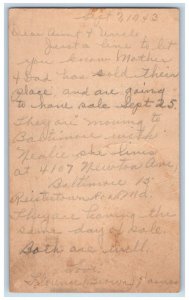 Sept 7, 1943
Dear Aunt & Uncle
Just a line to let
you know Mother
& Dad has sold their
place and are going
to have sale Sept 25
They are moving to
Baltimore with
Nealie she lives
at 4107 Newton Ave,
Baltimore 15
Reisterstown Road Md.
They are leaving the
same day of sale.
Both are well.
Love
Brown